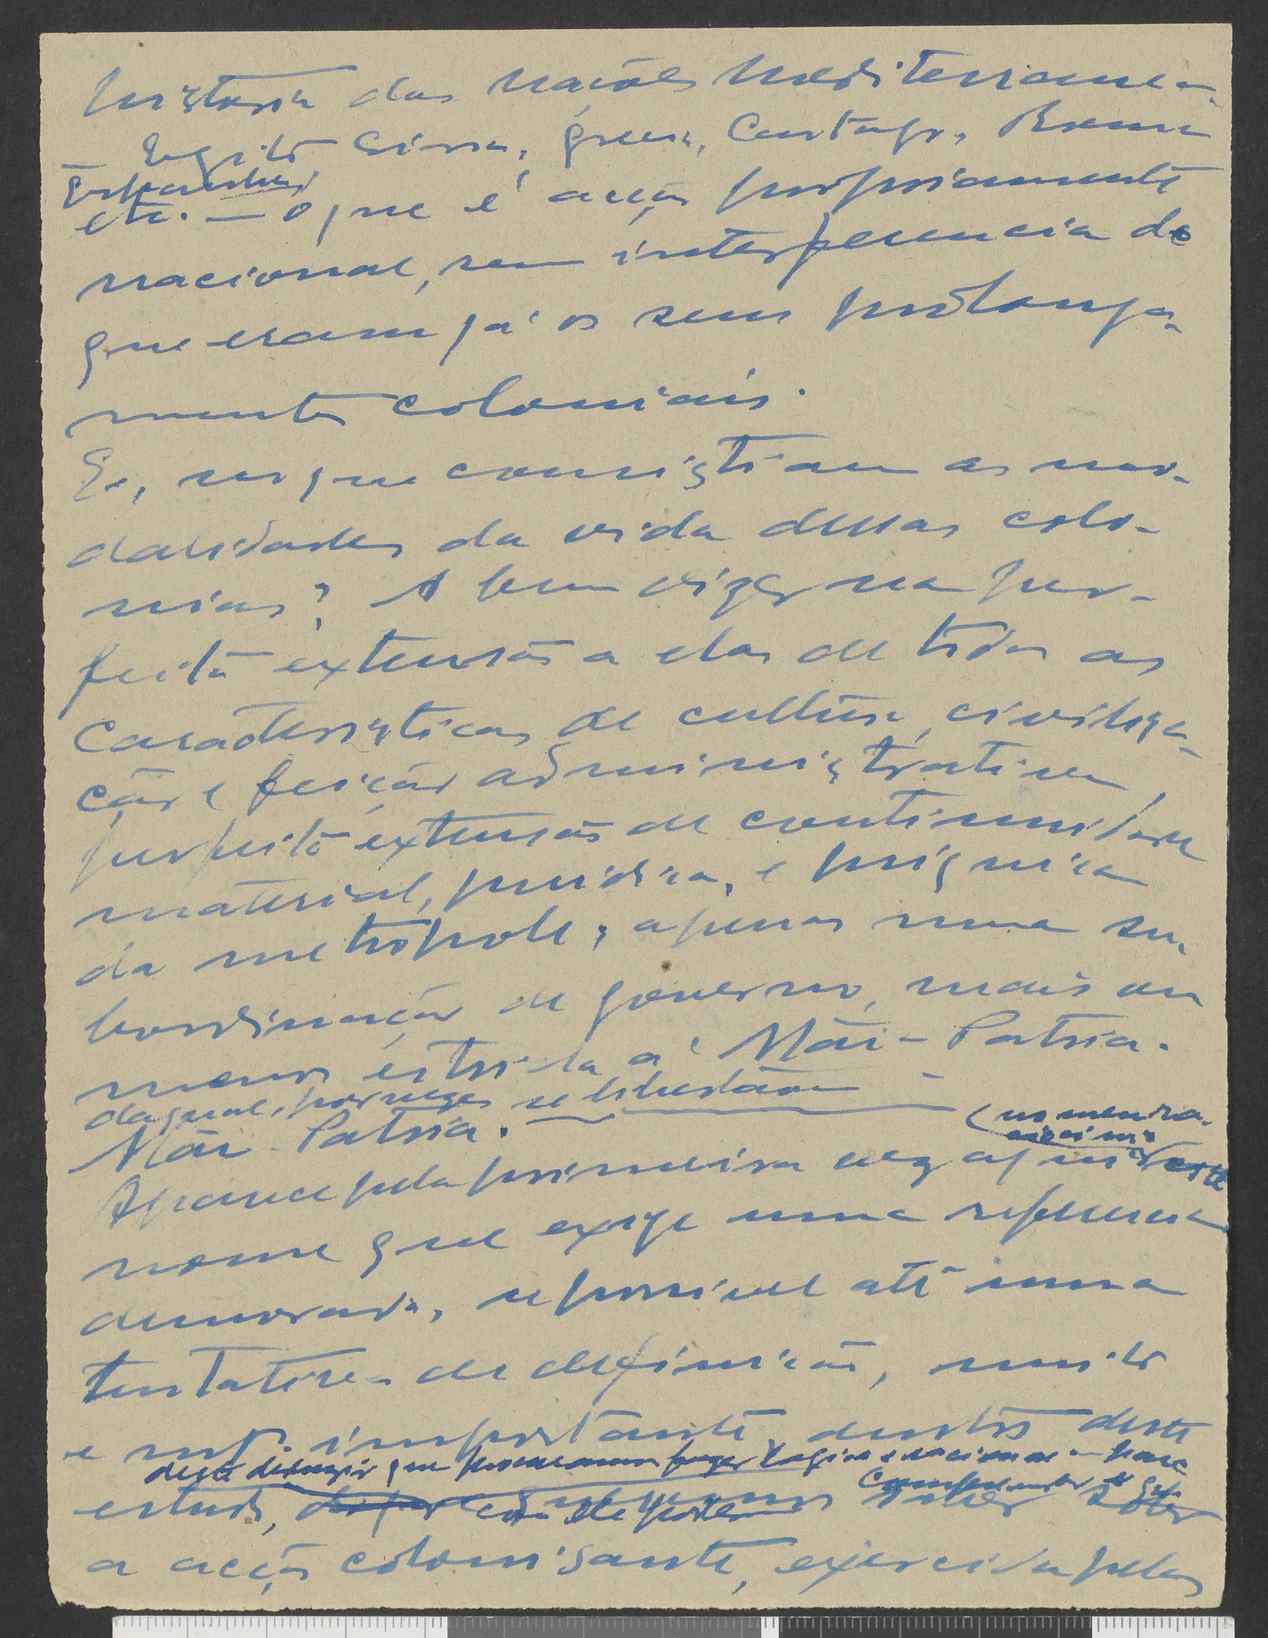 historia das nações mediterranea
Egipto Siria, Grecia, Cartago, Roma
etc. — o que é acção propriamente
nacional, sem interferencia do
que eram já os seus prolonga-
mentos coloniais.
E, no que consistiam as mo-
dalidades da vida dessas colo-
nias? A bem dizer na per-
feita extensão a elas de todas as
caracteristicas de cultura, civiliza-
ção e feição administrativa,
perfeita extensão de continuidade
material, juridica, e psiquica
da metropole; apenas numa su-
bordinação de governo, mais ou
menos estricta á Mãi-Patria.
da qual, por vezes se libertavam —
Mãi-Patria.
Aparece pela primeira vez aqui este
nome que exige uma referencia
demorada, se possivel até uma
tentativa de definição, muito
e mto. importante, dentro deste
deste desenho que procuramos fazer
estudo,
a acção colonisante, exercida pelas